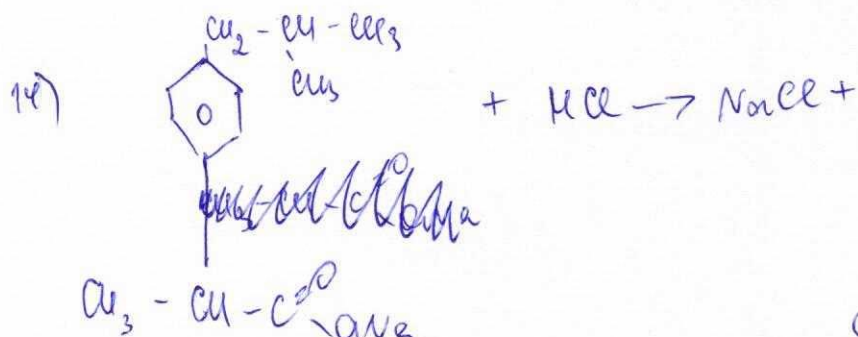 CH2 - CH - CH3
CH3
14) + HCl → NaCl +
CH3 - CH - C=O
ONa